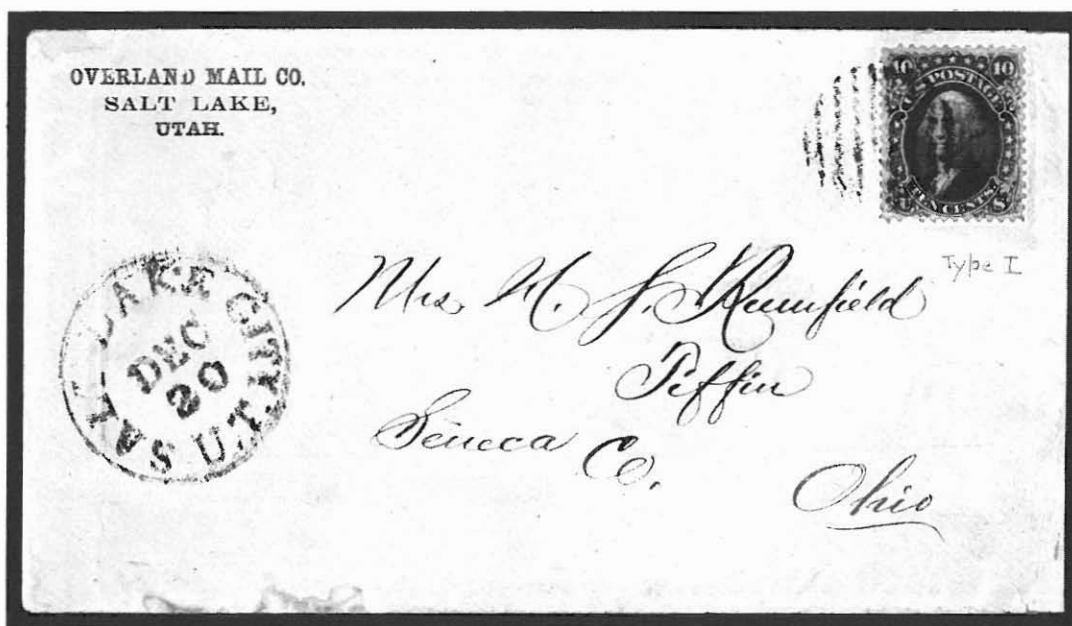 OVERLAND MAIL CO.
SALT LAKE,
UTAH.
10 10
U.S. POSTAGE
TEN CENTS
Type I
SALT LAKE CITY. U.T.
DEC
20
Mrs. H. S. Rumfield
Tiffin
Seneca Co.
Ohio